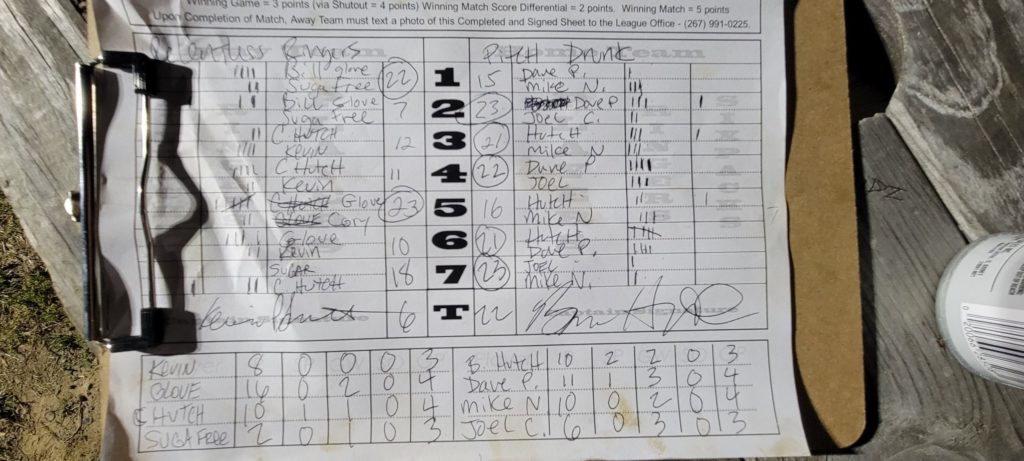 Winning Game = 3 points (via Shutout = 4 points) Winning Match Score Differential = 2 points. Winning Match = 5 points
Upon Completion of Match, Away Team must text a photo of this Completed and Signed Sheet to the League Office - (267) 991-0225.
Ringers Pitch Drunk
Bill glove 22 1 15 Dave P.
Suga free Mike N.
Bill Glove 7 2 23 Dave P
Suga free Joel C.
C HUTCH 12 3 21 Hutch
Kevin Mike N
C HUTCH 11 4 22 Dave P
Kevin Joel
Glove 23 5 16 Hutch
Cory Mike N
Glove 10 6 21 Hutch
Kevin Dave P.
SUGAR 18 7 23 Joel
C. HUTCH Mike N.
6 T 22
KEVIN 8 0 0 0 3 B. HUTCH 10 2 2 0 3
GLOVE 16 0 2 0 4 Dave P. 11 1 3 0 4
C HUTCH 10 1 1 0 4 Mike N 10 0 2 0 4
SUGA FREE 2 0 0 0 3 JOEL C. 6 0 3 0 3